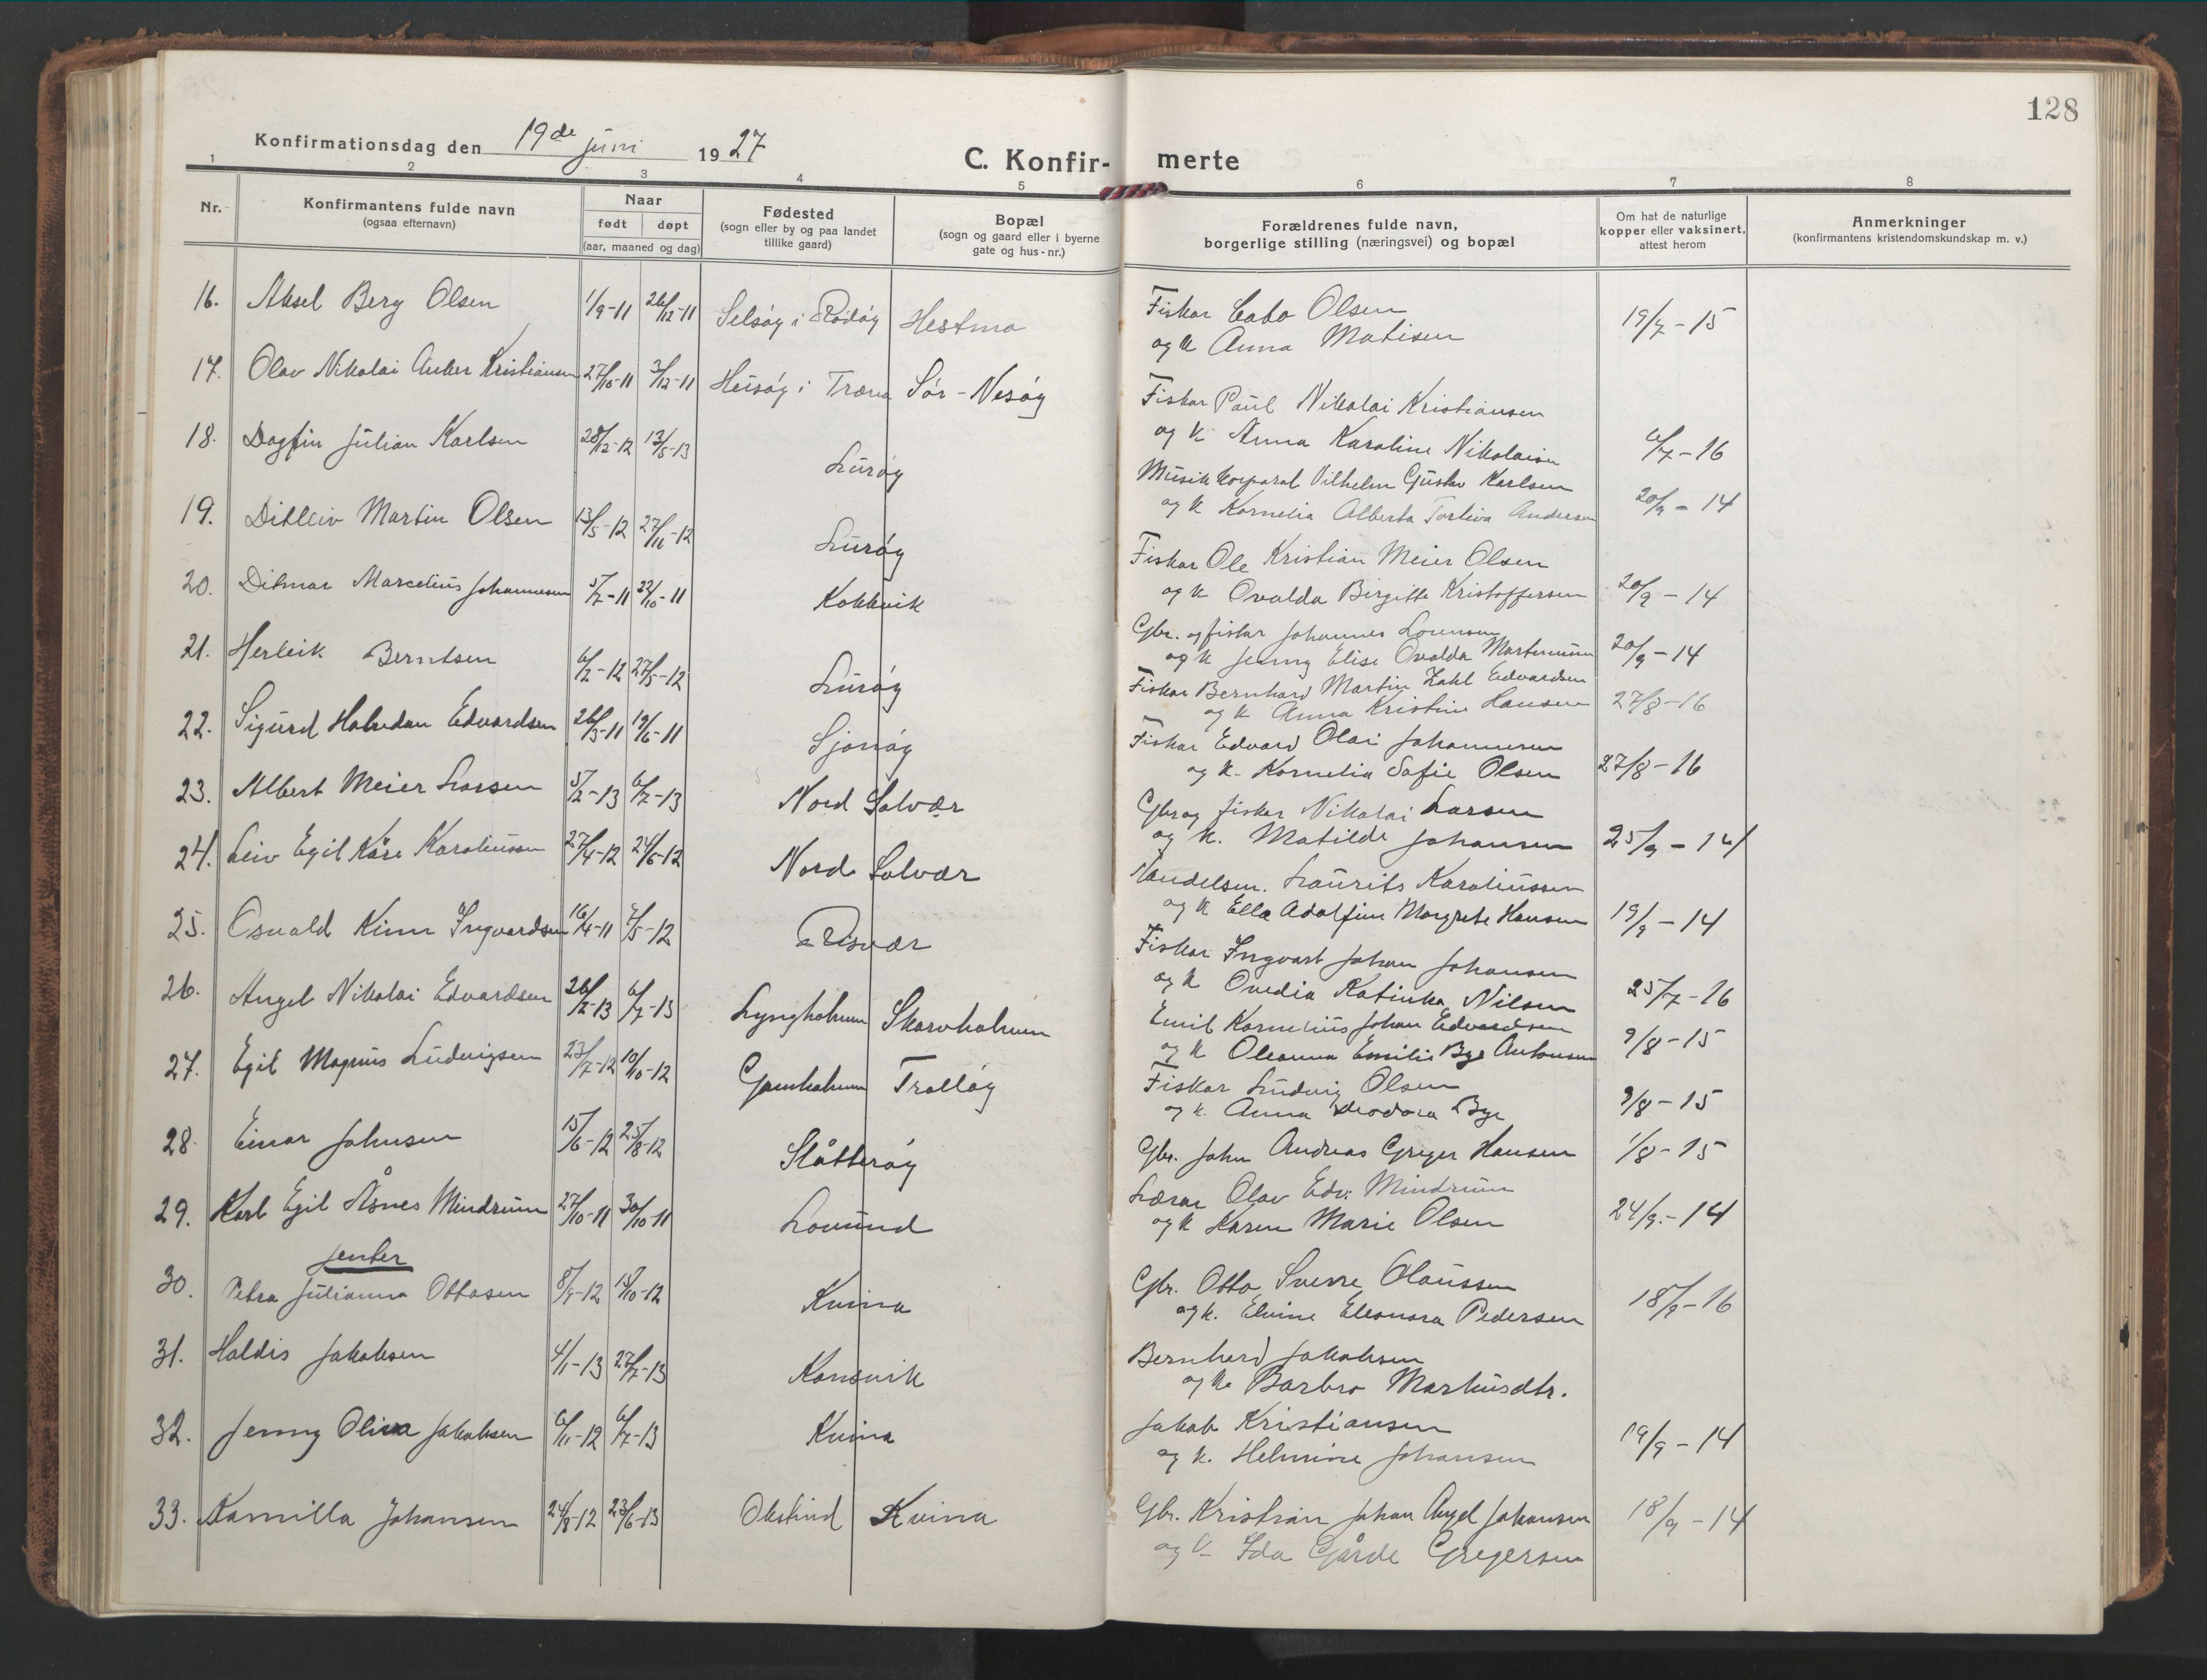 128
Konfirmationsdag den 19de juni 1927
C. Konfir- merte
1 2 3 4 5 6 7 8
Nr.
Konfirmantens fulde navn
(ogsaa efternavn)
Naar
født døpt
(aar, maaned og dag)
Fødested
(sogn eller by og paa landet
tillike gaard)
Bopæl
(sogn og gaard eller i byerne
gate og hus-nr.)
Forældrenes fulde navn,
borgerlige stilling (næringsvei) og bopæl
Om hat de naturlige
kopper eller vaksinert,
attest herom
Anmerkninger
(konfirmantens kristendomskundskap m. v.)
16. Aksel Berg Olsen 1/9-11 26/12-11 Selsøy i Rødøy Hestmo
Fisker Olsen
og k Anna Matisen 19/7-15
17. Olav Nikolai Anker Kristiansen 27/10-11 3/12-11 Husøy i Træna Sør-Nesøy
Fisker Paul Nikolai Kristiansen
og k Anna Karoline Nikolaisen 6/7-16
18. Dagfin Julian Karlsen 28/12-12 13/5-13 Lurøy
Musikkorporal Vilhelm Gustav Karlsen
og k Kornelia Alberta Andersen 20/9-14
19. Ditleiv Martin Olsen 13/5-12 27/11-12 Lurøy
Fisker Ole Kristian Meier Olsen
og k Ovalda Birgitte Kristoffersen 20/9-14
20. Ditmar Marcelius Johannesen 5/7-11 22/10-11 Kokkvik
Gbr. og fisker Johannes Lorensen
og k Jenny Elise Ovalda Martinussen 20/9-14
21. Herleik Berntsen 6/2-12 27/5-12 Lurøy
Fisker Bernhard Martin Zahl Edvardsen
og k Anna Kristine Hansen 27/8-16
22. Sigurd Halvdan Edvardsen 26/3-11 19/6-11 Sjonøy
Fisker Edvard Olai Johannesen
og k. Kornelia Sofie Olsen 27/8-16
23. Albert Meier Larsen 5/2-13 6/7-13 Nord Solvær
Gbr og fisker Nikolai Larsen
og k. Matilde Johansen 25/9-14
24. Leiv Egil Kåre Karoliussen 27/4-12 24/6-12 Nord Solvær
Handelsm. Laurits Karoliussen
og k Ella Adolfine Margrete Hansen 19/9-14
25. Osvald Kinn Ingvardsen 16/4-11 /5-12 Risvær
Fisker Ingvart Johan Johansen
og k Ovedia Katinka Nilsen 25/7-16
26. Angel Nikolai Edvardsen 26/2-13 6/7-13 Lyngholmen Skarvholmen
Emil Kornelius Johan Edvardsen
og k Oleanna Emilie Bye Antonsen 9/8-15
27. Egil Magnus Ludvigsen 23/7-12 10/10-12 Gamholmen Trolløy
Fisker Ludvig Olsen
og k. Anna Teodora Bye 9/8-15
28. Einar Johnsen 15/6-12 25/8-12 Slåtterøy
Gbr. John Andreas Greger Hansen 1/8-15
29. Karl Egil Åsnes Mindrum 27/10-11 30/10-11 Lovund
Lærar Olav Edv. Mindrum
og k Karen Marie Olsen 24/9.-14
jenter
30. Petra Julianna Ottosen 8/9-12 15/10-12 Kvina
Gbr. Otto Sverre Olaussen
og k. Elvine Elleonora Pedersen 18/9-16
31. Haldis Jakobsen 4/1-13 27/7-13 Konsvik
Bernhard Jakobsen
og k Barbro Markusdtr.
32. Jenny Oliva Jakobsen 6/11-12 6/7-13 Kvina
Jakob Kristiansen
og k. Helmine Johansen 19/9-14
33. Kamilla Johansen 24/8-12 23/6-13 Olstind Kvina
Gbr. Kristian Johan Angel Johansen 18/9-14
og k Ida Gårde Gregersen